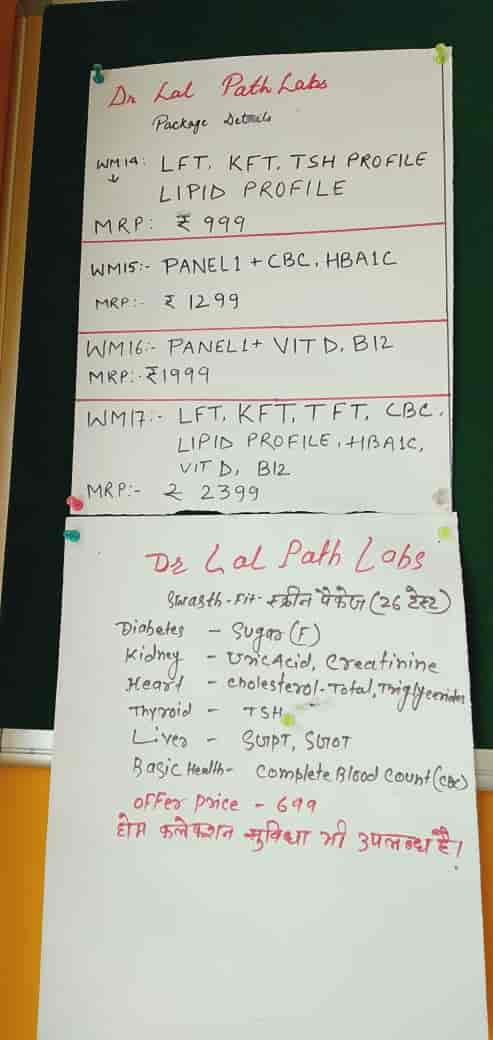 Dr Lal PathLabs
Package Details
WM14: LFT, KFT, TSH PROFILE
LIPID PROFILE
MRP: ₹ 999
WM15:- PANEL1 + CBC, HBA1C
MRP:- ₹ 1299
WM16:- PANEL1+ VIT D, B12
MRP:-₹1999
WM17:- LFT, KFT, TFT, CBC,
LIPID PROFILE, HBA1C,
VIT D, B12
MRP:- ₹ 2399
Dr Lal Path Labs
Swasth-Fit-स्क्रीन पैकेज (26 टेस्ट)
Diabetes - Sugar (F)
Kidney - Uric Acid, Creatinine
Heart - Cholesterol-Total, Triglycerides
Thyroid - TSH
Liver - SGPT, SGOT
Basic Health- Complete Blood Count (CBC)
OFFer Price - 699
होम कलेक्शन सुविधा भी उपलब्ध है।